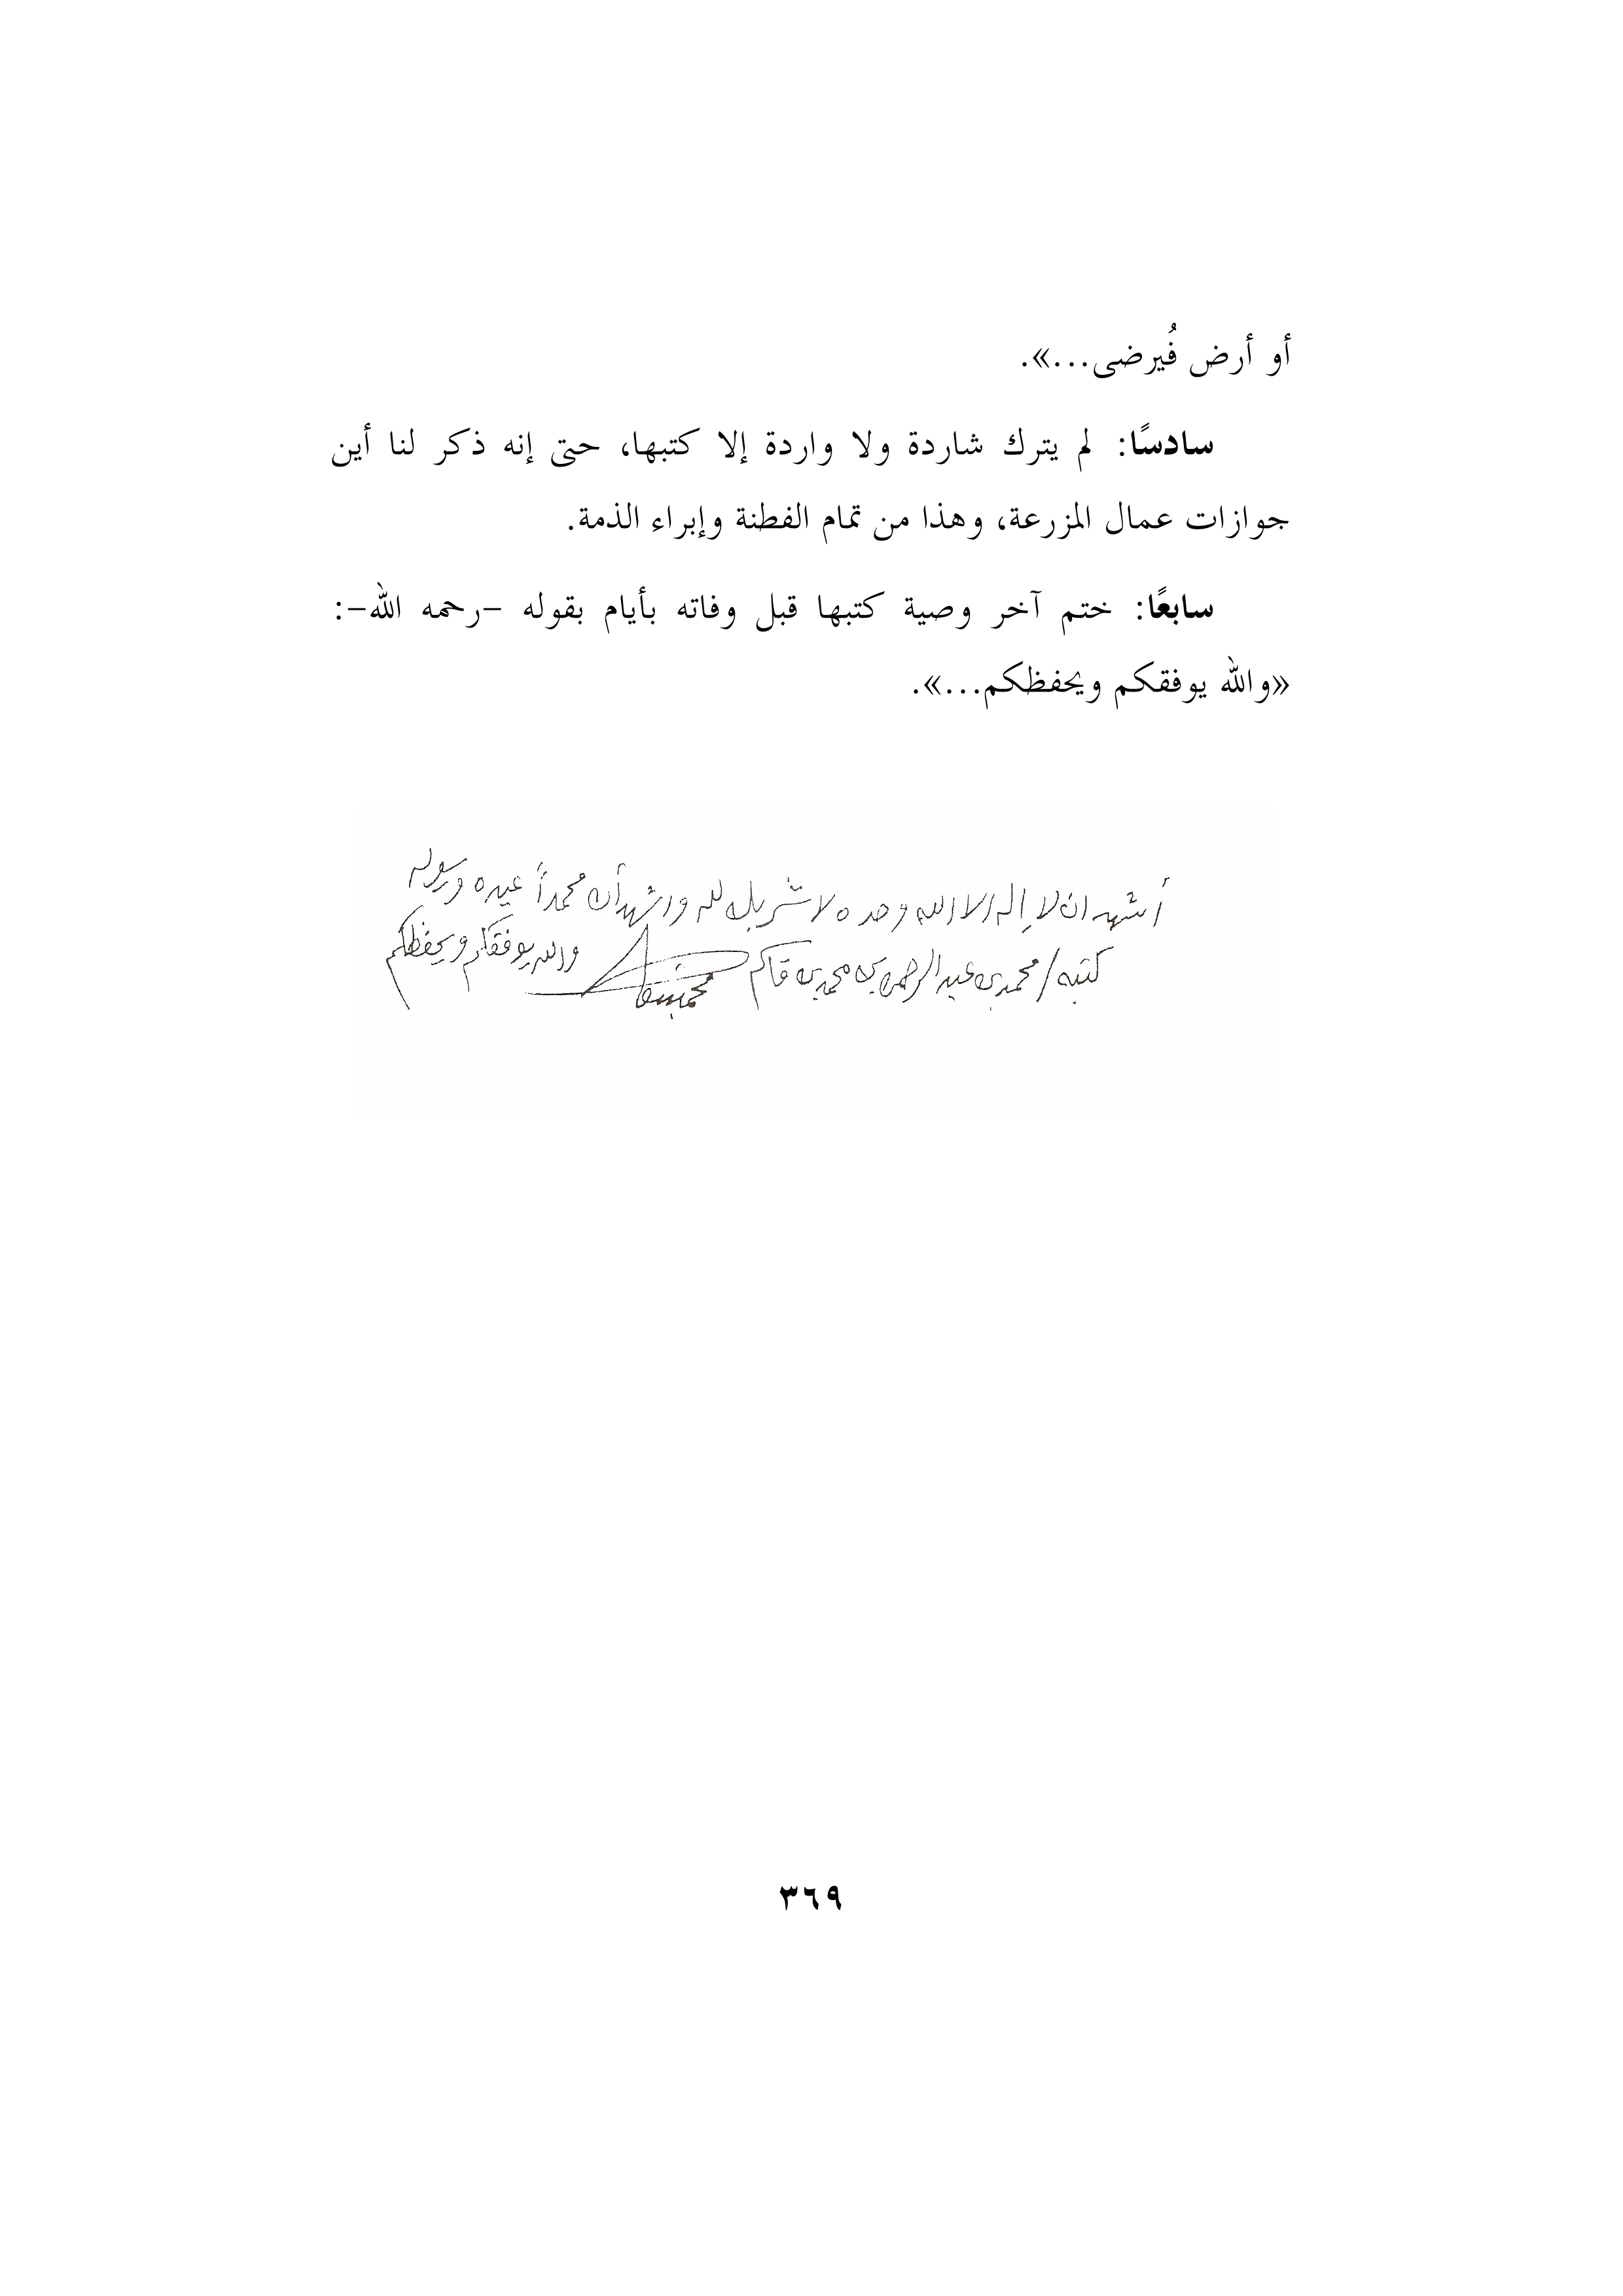 أو أرض فُيرضى...».
سادسًا: لم يترك شاردة ولا واردة إلا كتبها، حتى إنه ذكر لنا أين
جوازات عمال المزرعة، وهذا من تمام الفطنة وإبراء الذمة.
سابعًا: ختم آخر وصية كتبها قبل وفاته بأيام بقوله –رحمه الله–:
«والله يوفقكم ويحفظكم...».
أشهد ان لا إله الا الله وحده لا شريك له واشهد أن محمداً عبده ورسوله
كتبه / محمد بن عبد الرحمن بن محمد بن قاسم والله يوفقكم ويحفظكم
٣٦٩